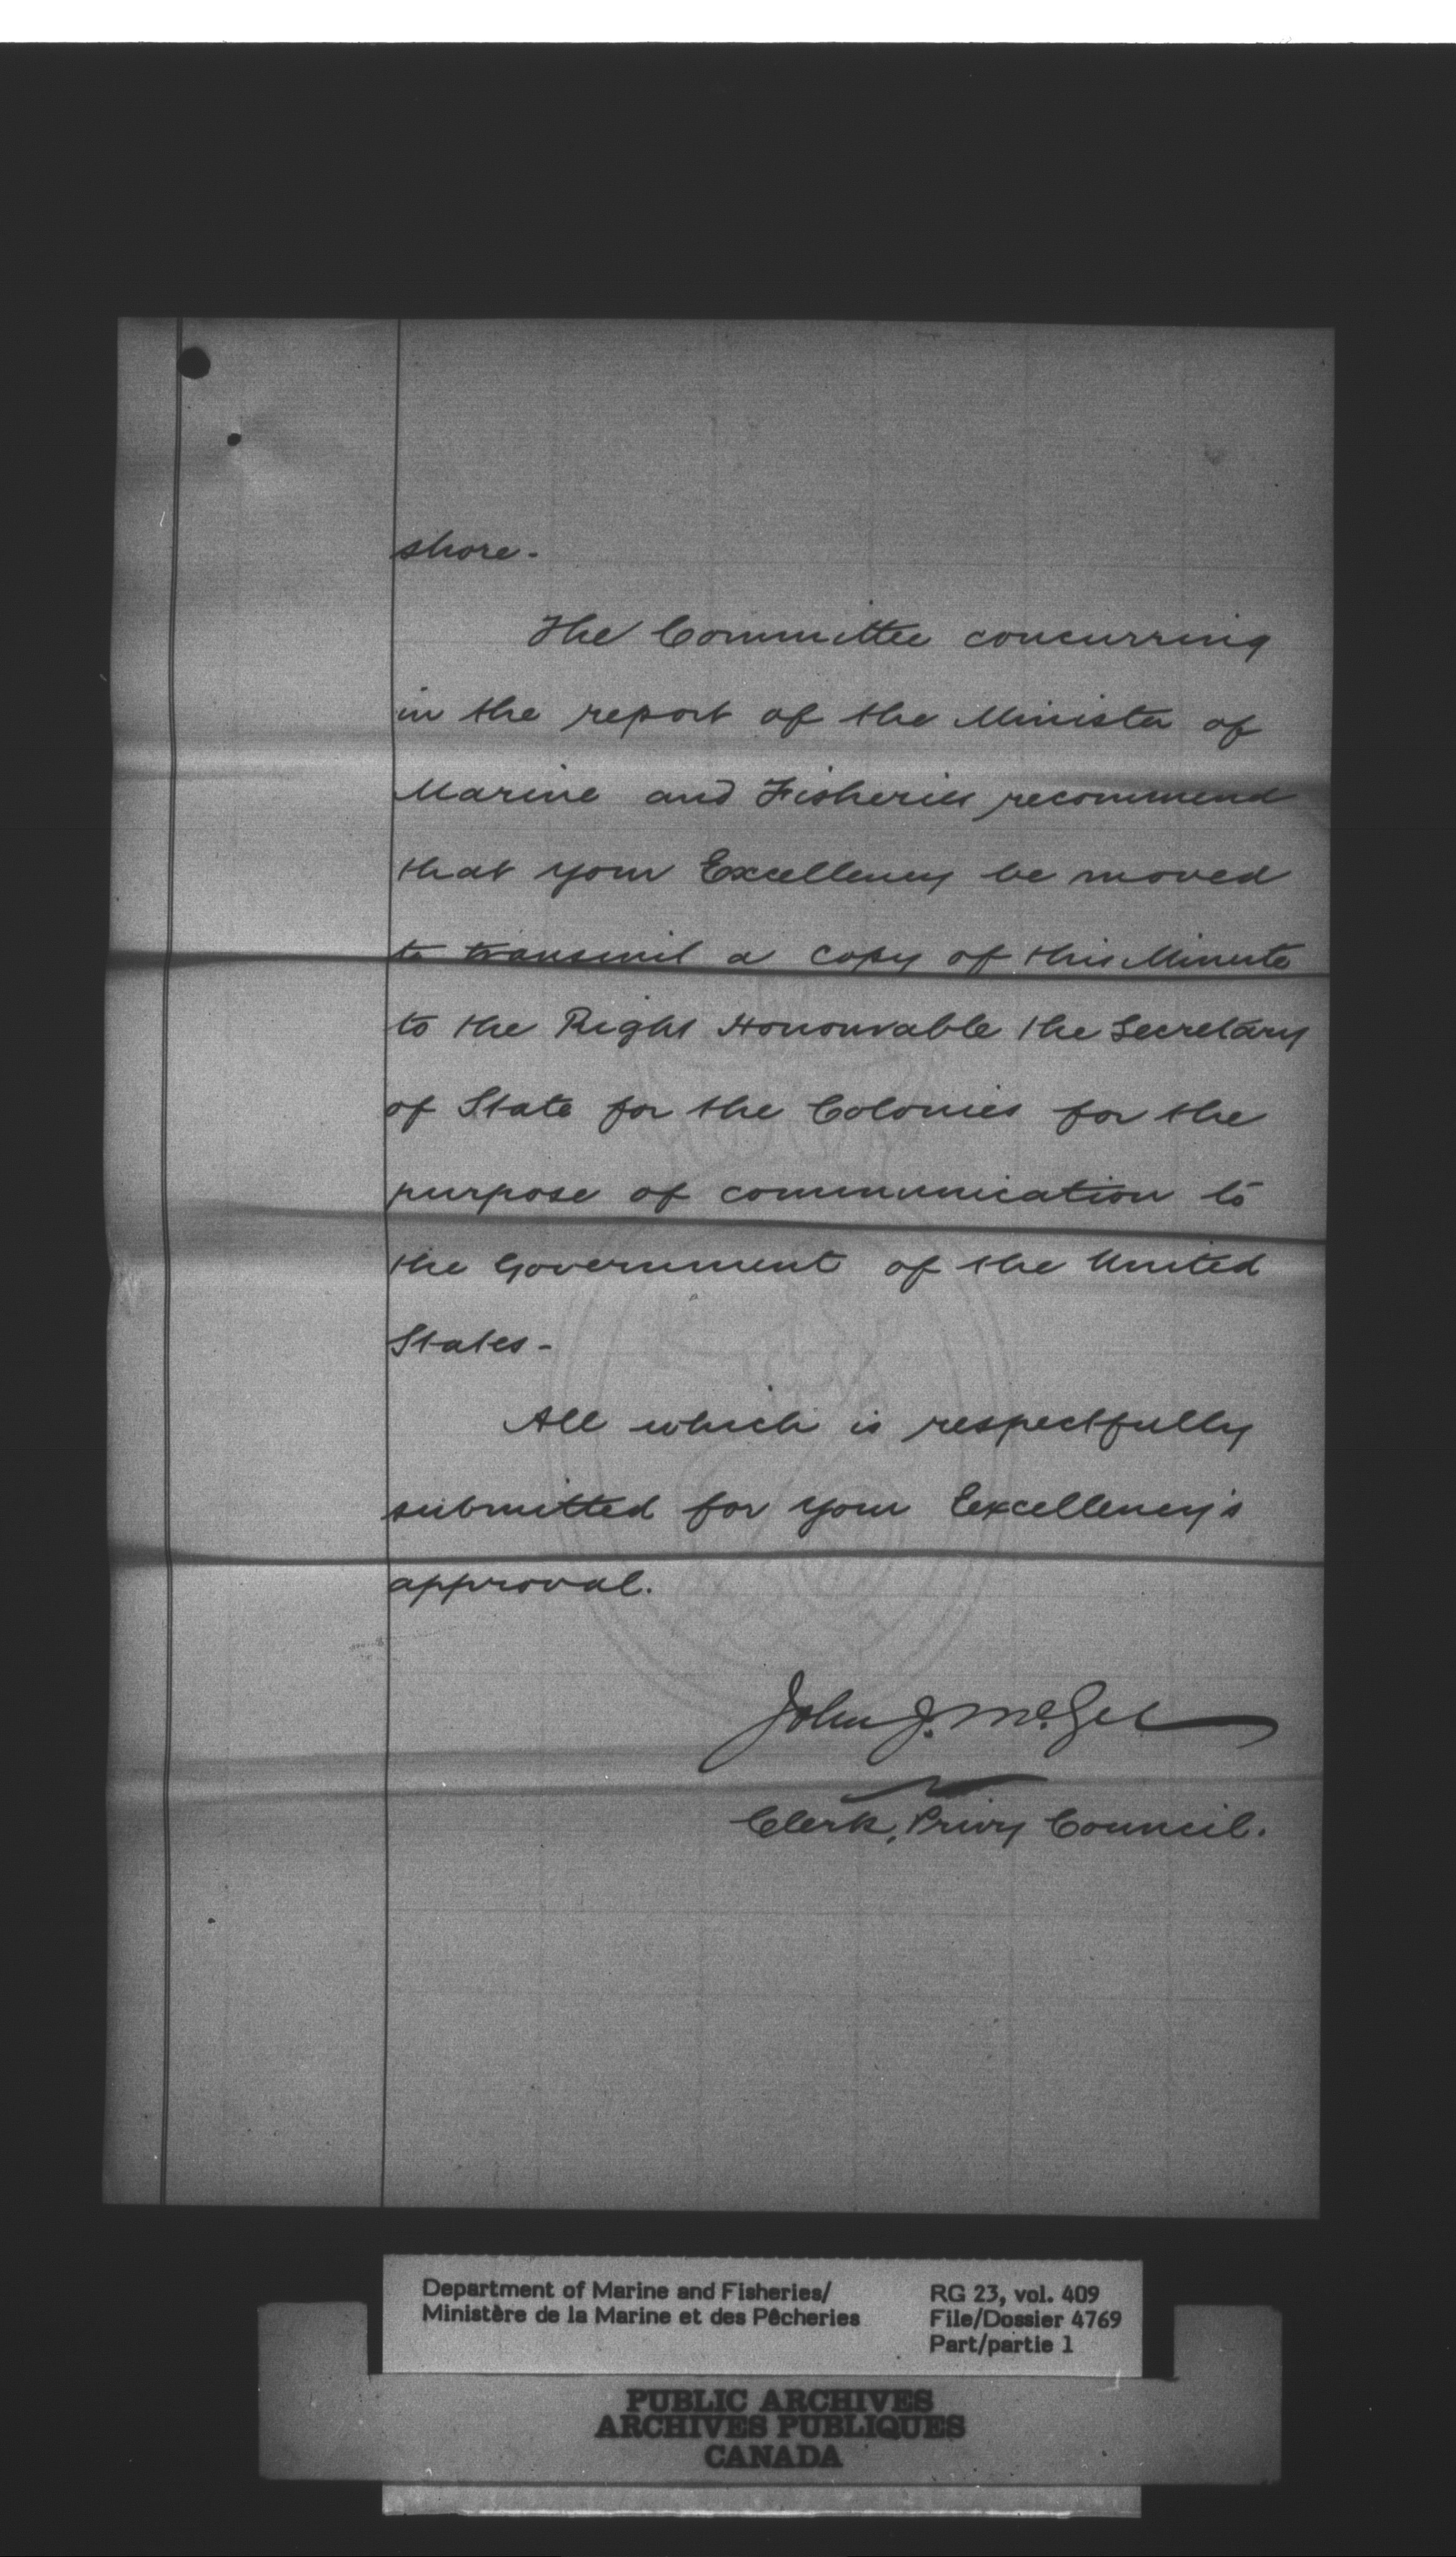 shore.
The Committee concurring
in the report of the Minister of
Marine and Fisheries recommend
that Your Excellency be moved
to transmit a copy of this Minute
to the Right Honourable the Secretary
of State for the Colonies for the
purpose of communication to
the Government of the United
States.
All which is respectfully
submitted for Your Excellency's
approval.
John J. McGee
Clerk, Privy Council.
Department of Marine and Fisheries/
Ministère de la Marine et des Pêcheries
RG 23, vol. 409
File/Dossier 4769
Part/partie 1
PUBLIC ARCHIVES
ARCHIVES PUBLIQUES
CANADA